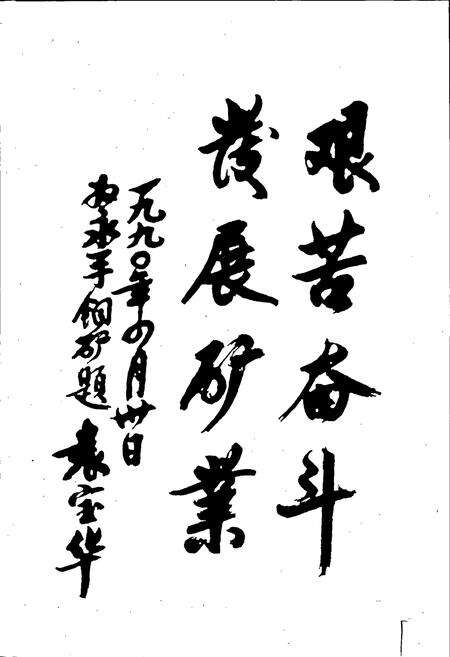 艰苦奋斗
發展矿業
一九九〇年四月卅日
为永平铜矿题 袁宝华